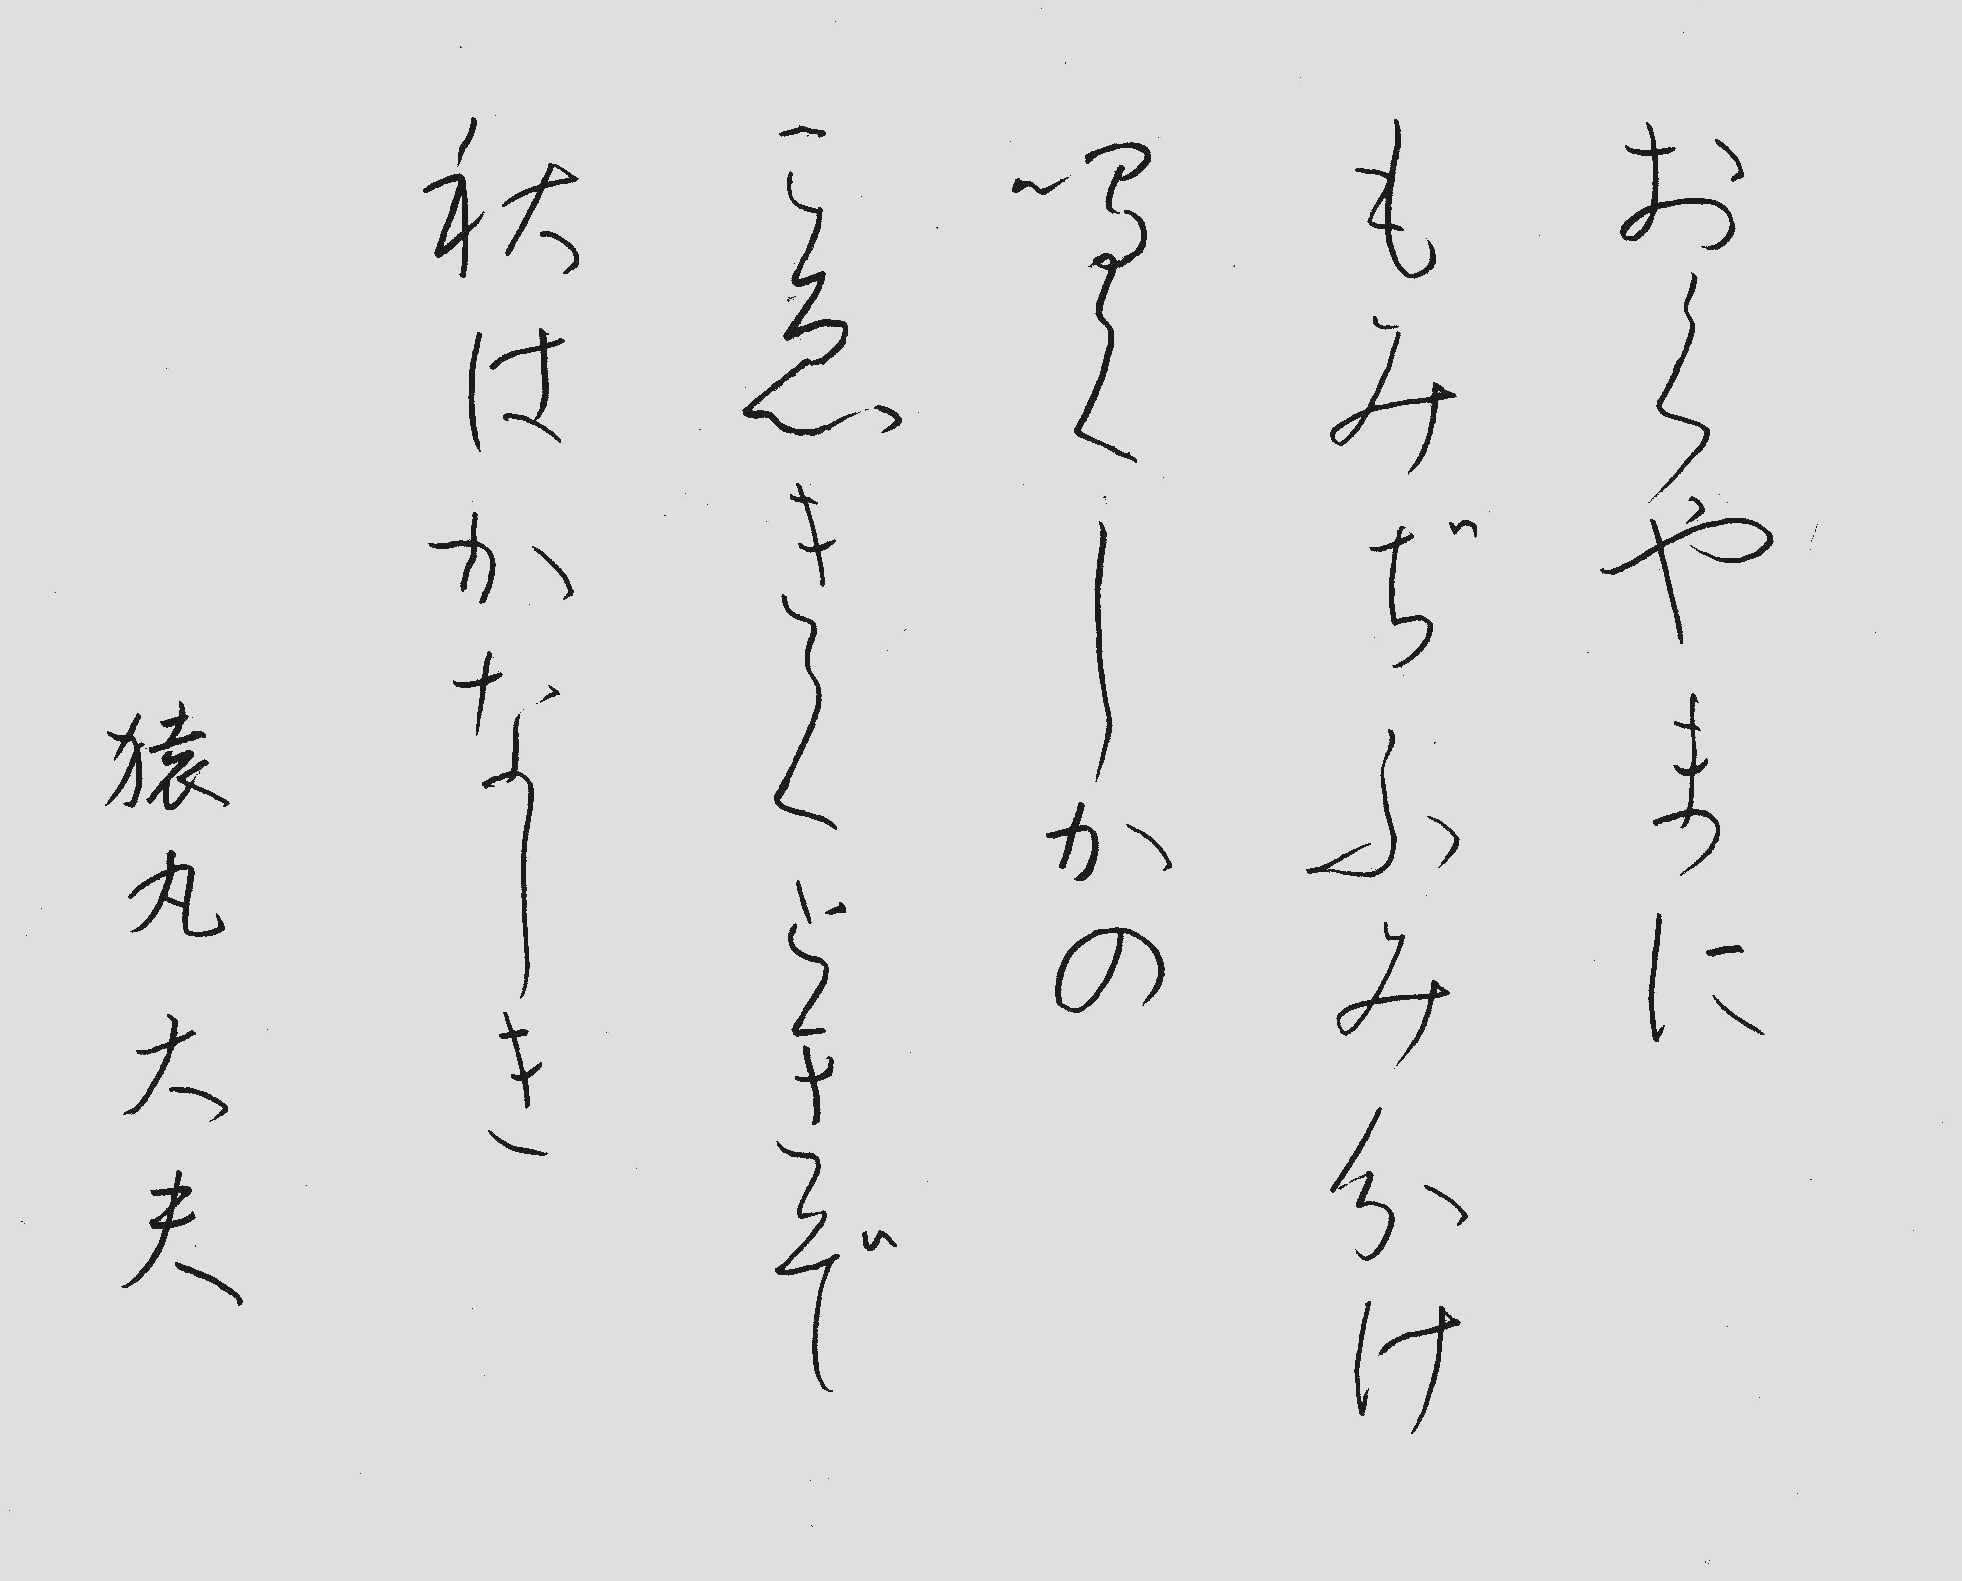 おくやまに
もみぢふみ分け
鳴くしかの
こゑきくときぞ
秋はかなしき
猿丸大夫